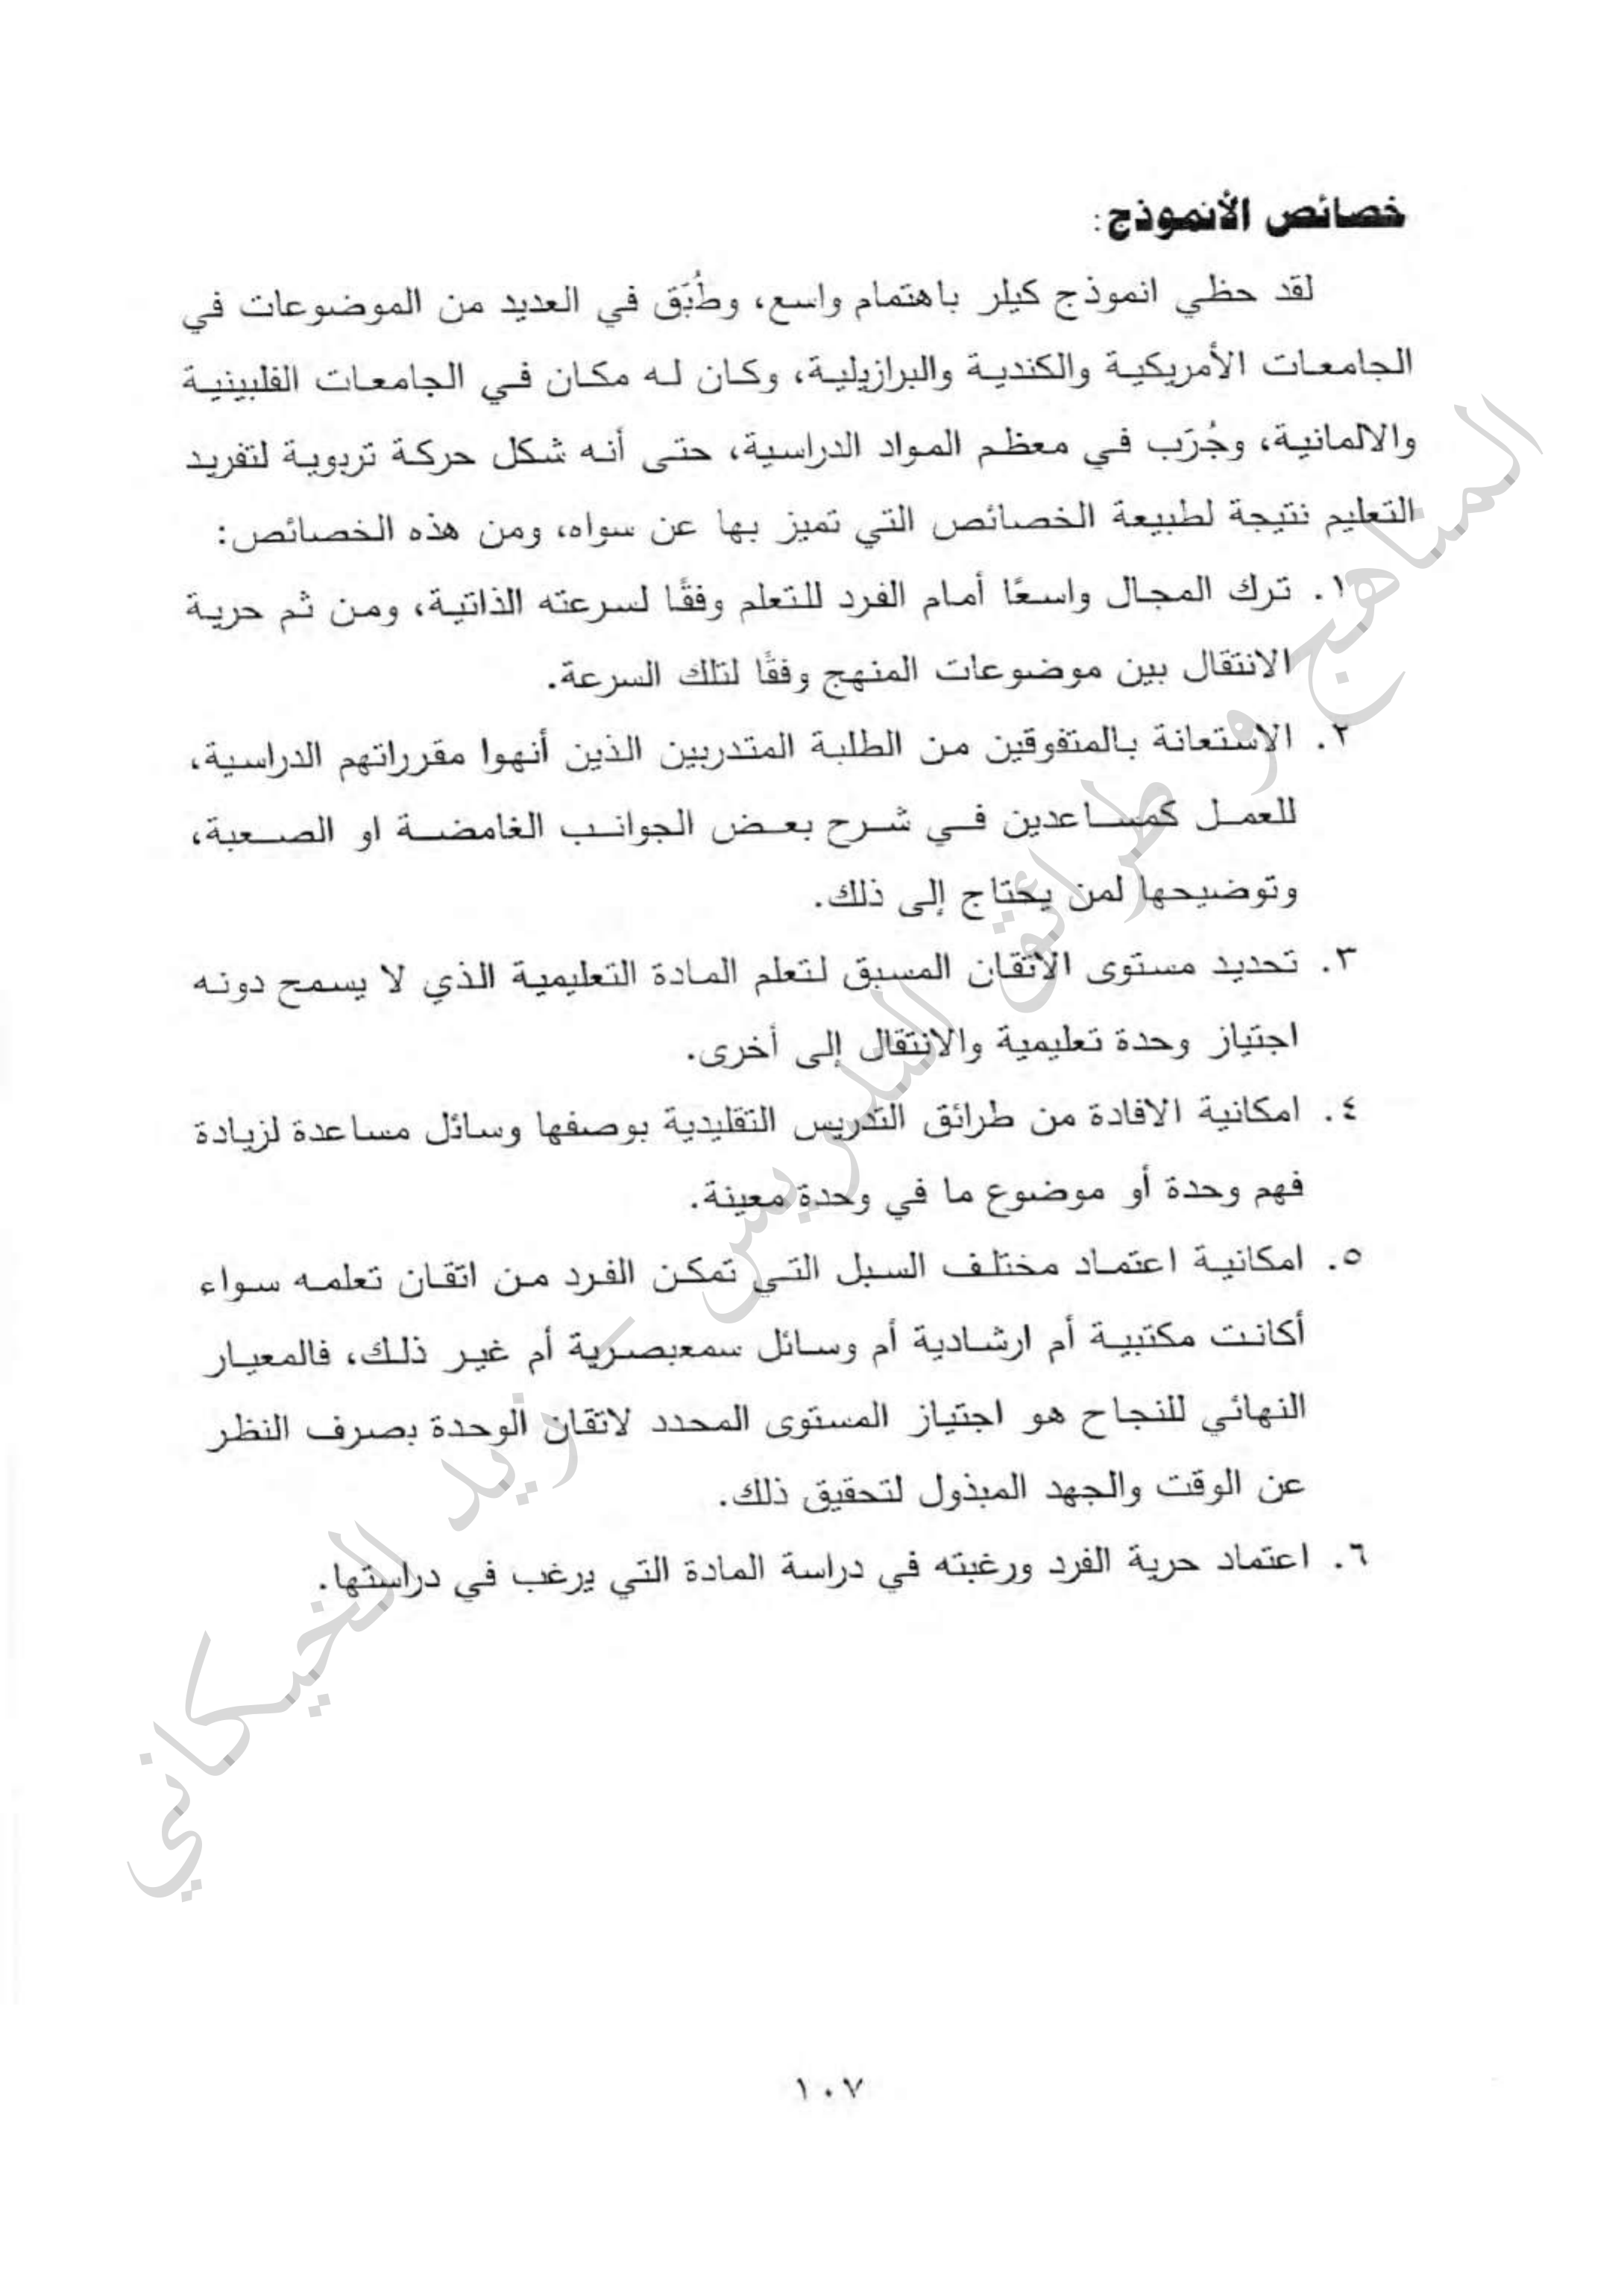 خصائص الأنموذج:
لقد حظي انموذج كيلر باهتمام واسع، وطُبَق في العديد من الموضوعات في
الجامعات الأمريكية والكندية والبرازيلية، وكان له مكان في الجامعات الفلبينية
والالمانية، وجُرَب في معظم المواد الدراسية، حتى أنه شكل حركة تربوية لتفريد
التعليم نتيجة لطبيعة الخصائص التي تميز بها عن سواه، ومن هذه الخصائص:
١. ترك المجال واسعًا أمام الفرد للتعلم وفقًا لسرعته الذاتية، ومن ثم حرية
الانتقال بين موضوعات المنهج وفقًا لتلك السرعة.
٢. الاستعانة بالمتفوقين من الطلبة المتدربين الذين أنهوا مقرراتهم الدراسية،
للعمل كمساعدين في شرح بعض الجوانب الغامضة او الصعبة،
وتوضيحها لمن يحتاج إلى ذلك.
٣. تحديد مستوى الاتقان المسبق لتعلم المادة التعليمية الذي لا يسمح دونه
اجتياز وحدة تعليمية والانتقال إلى أخرى.
٤. امكانية الافادة من طرائق التدريس التقليدية بوصفها وسائل مساعدة لزيادة
فهم وحدة أو موضوع ما في وحدة معينة.
٥. امكانية اعتماد مختلف السبل التي تمكن الفرد من اتقان تعلمه سواء
أكانت مكتبية أم ارشادية أم وسائل سمعبصرية أم غير ذلك، فالمعيار
النهائي للنجاح هو اجتياز المستوى المحدد لاتقان الوحدة بصرف النظر
عن الوقت والجهد المبذول لتحقيق ذلك.
٦. اعتماد حرية الفرد ورغبته في دراسة المادة التي يرغب في دراستها.
المناهج و طرائق التدريس - زيد الخيكاني
١٠٧